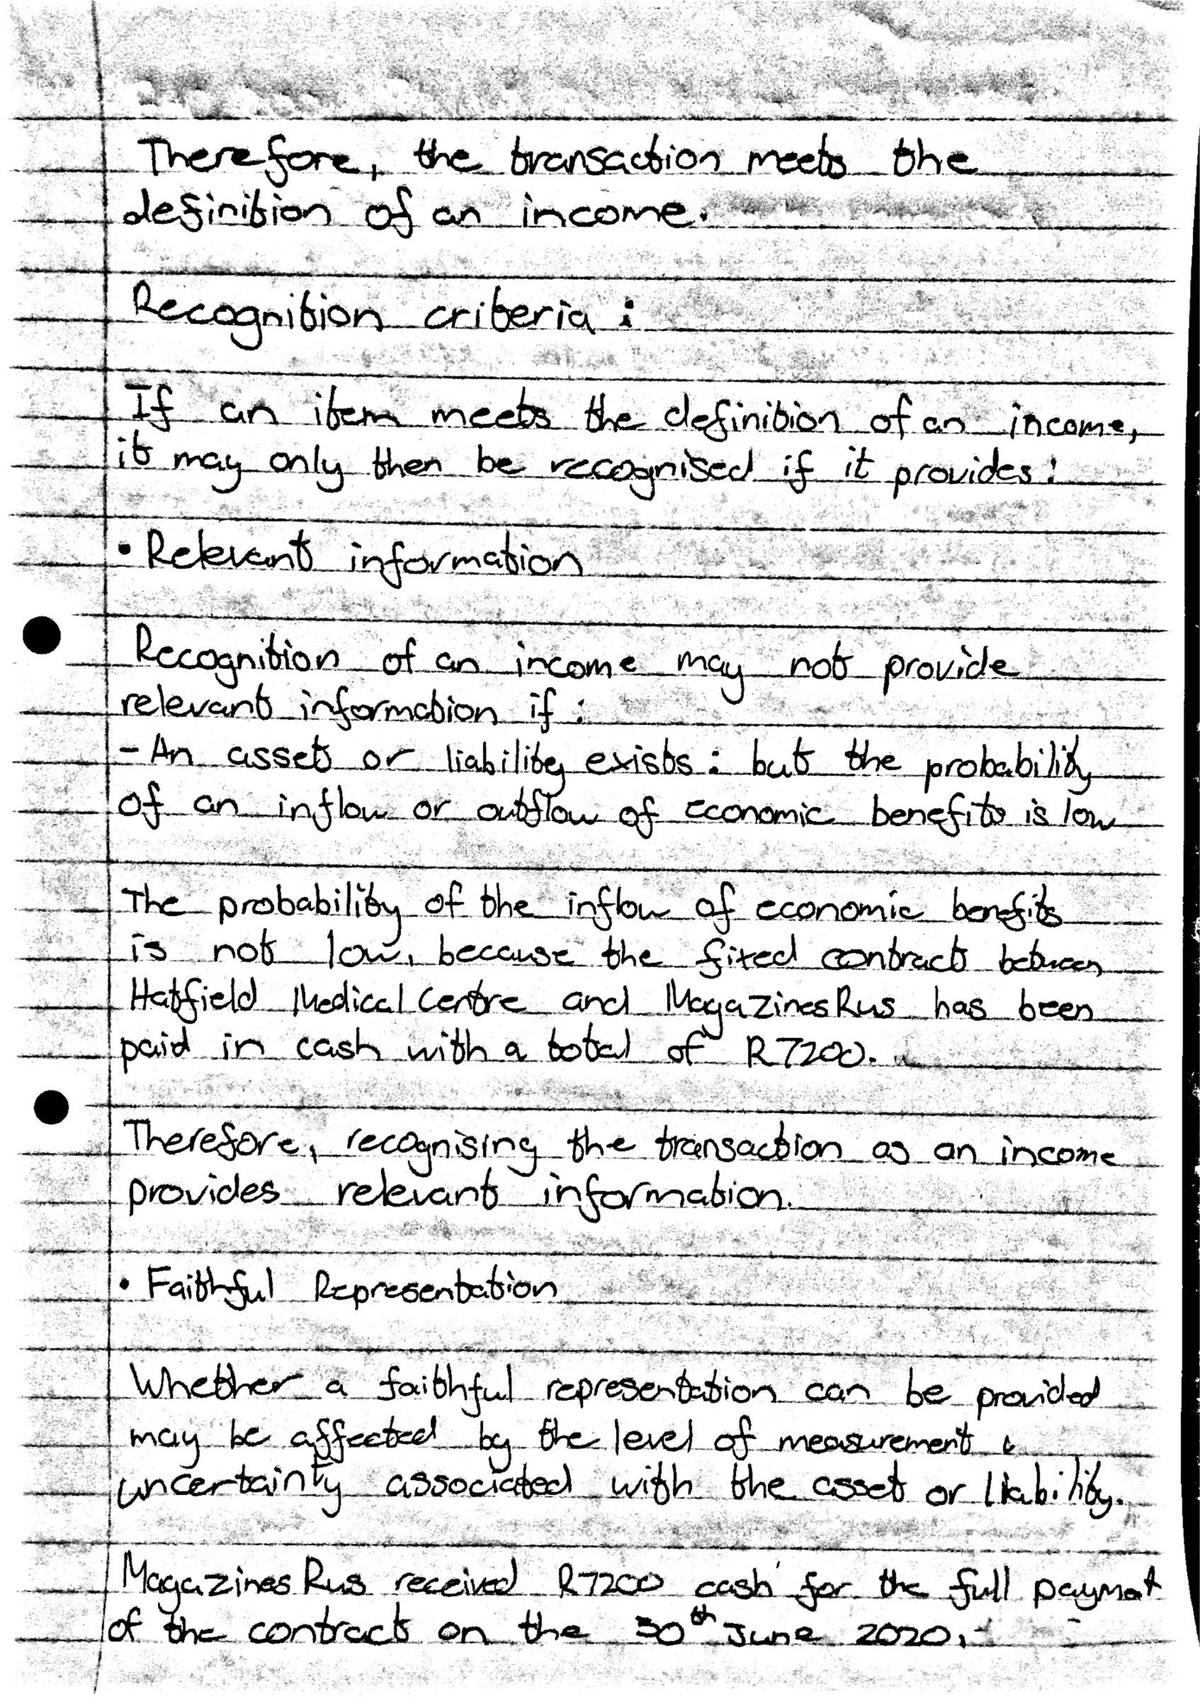 Therefore, the transaction meets the
definition of an income.
Recognition criteria :
If an item meets the definition of an income,
it may only then be recognised if it provides :
• Relevant information
Recognition of an income may not provide
relevant information if :
- An asset or liability exists : but the probability
of an inflow or outflow of economic benefits is low
The probability of the inflow of economic benefits
is not low, because the fixed contract between
Hatfield Medical Centre and MagazinesRus has been
paid in cash with a total of R7200.
Therefore, recognising the transaction as an income
provides relevant information.
• Faithful Representation
Whether a faithful representation can be provided
may be affected by the level of measurement
uncertainty associated with the asset or liability.
MagazinesRus received R7200 cash for the full payment
of the contract on the 30th June 2020.